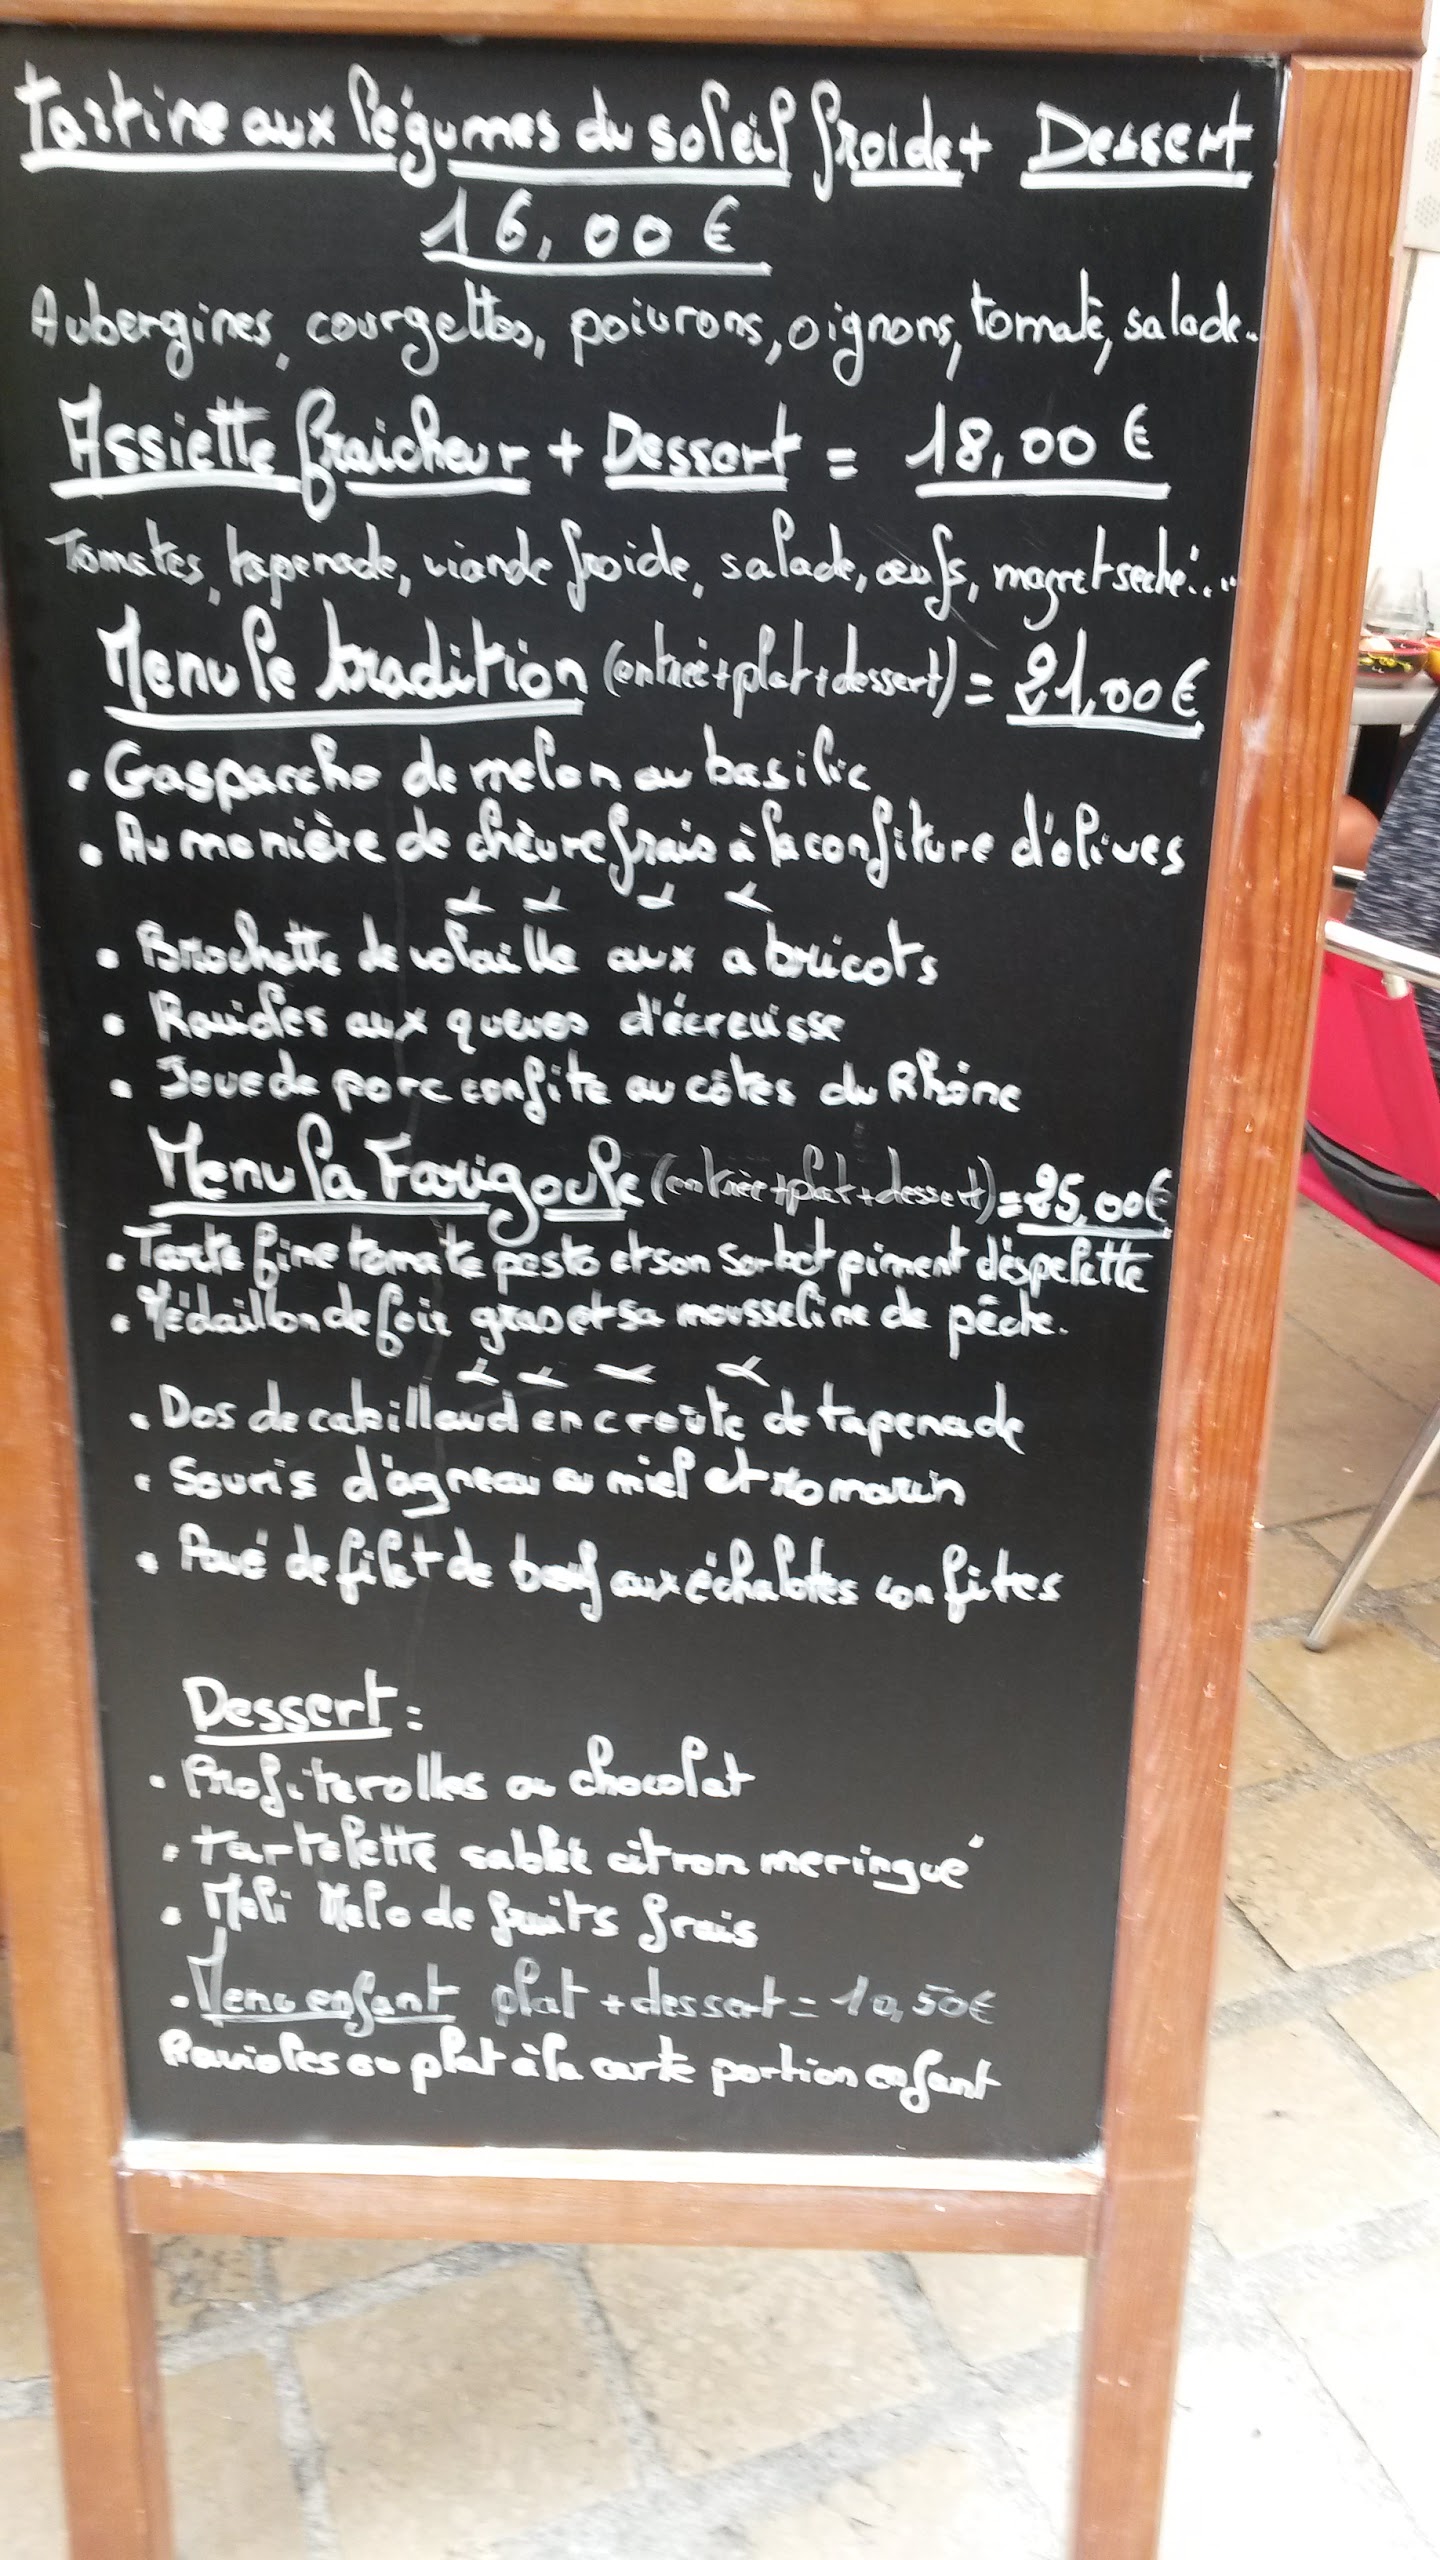 Tartine aux légumes du soleil froide + Dessert
16,00 €
Aubergines, courgettes, poivrons, oignons, tomate, salade..
Assiette fraicheur + Dessert = 18,00 €
Tomates, tapenade, viande froide, salade, œufs, magret seché...
Menu le tradition (entrée+plat+dessert) = 21,00 €
• Gaspacho de melon au basilic
• Aumonière de chèvre frais à la confiture d'olives
• Brochette de volaille aux abricots
• Ravioles aux queues d'écrevisse
• Joue de porc confite au côtes du Rhône
Menu la Farigoule (entrée+plat+dessert) = 25,00 €
• Tarte fine tomate pesto et son sorbet piment d'éspelette
• Médaillon de foie gras et sa mousseline de pêche.
• Dos de cabillaud en croûte de tapenade
• Souris d'agneau au miel et romarin
• Pavé de filet de bœuf aux échalotes confites
Dessert :
• Profiterolles au chocolat
• Tartelette sablée citron meringué
• Méli Mélo de fruits frais
• Menu enfant plat + dessert = 10,50€
Ravioles ou plat à la carte portion enfant